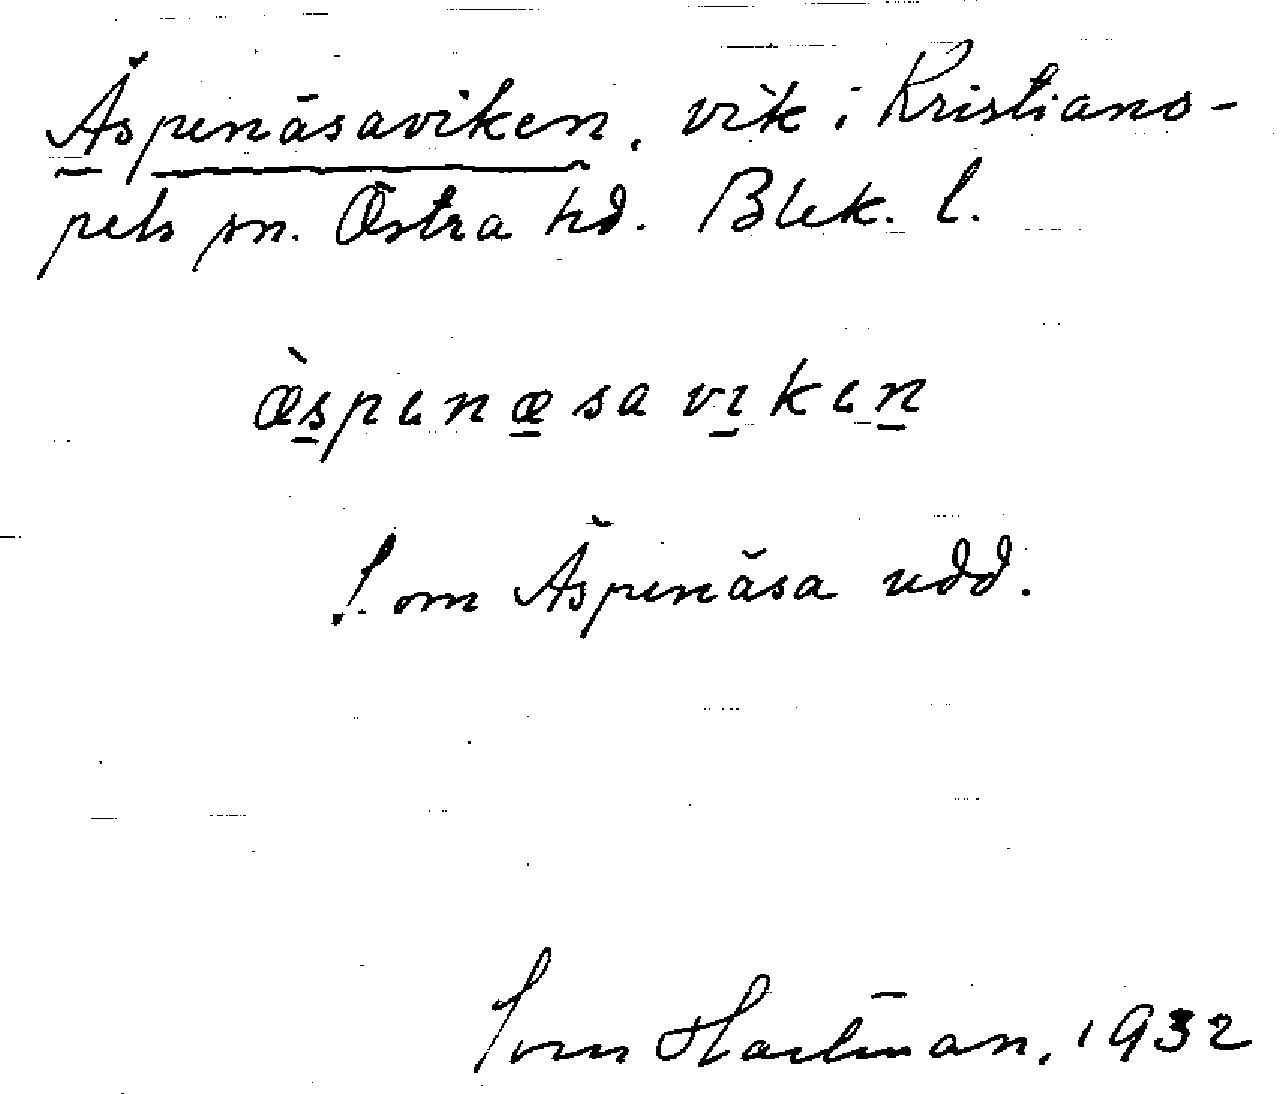 Äspenäsaviken, vik i Kristiano-
pels sn. Östra hd. Blek. l.
æ̀spenæsaviken
S. om Äspenäsa udd.
Sven Hartman, 1932